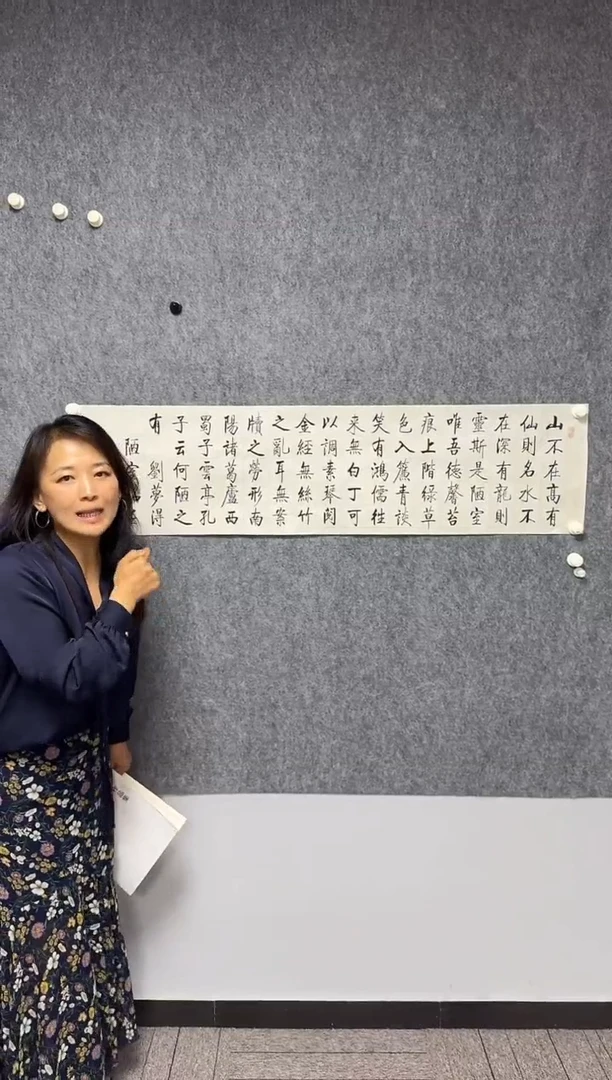 山不在高有
仙則名水不
在深有龍則
靈斯是陋室
唯吾德馨苔
痕上階綠草
色入簾青談
笑有鴻儒往
來無白丁可
以調素琴閱
金經無絲竹
之亂耳無案
牘之勞形南
陽諸葛廬西
蜀子雲亭孔
子云何陋之
有 劉夢得
陋室